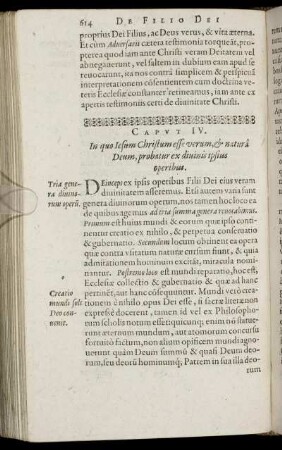 614 DE FILIO DEI
proprius Dei Filius, ac Deus verus, & vita æterna.
Et cùm Adversarii cætera testimonia torqueāt, pro-
pterea quod iam ante Christi veram Deitatem vel
abnegauerunt, vel saltem in dubium eam apud se
reuocarunt, ita nos contrà simplicem & perspicuā
interpretationem consentientem cum doctrina ve-
teris Ecclesiæ constanter retineamus, iam ante ex
apertis testimoniis certi de diuinitate Christi.
CAPVT IV.
In quo Iesum Christum esse verum, & naturâ
Deum, probatur ex diuinis ipsius
operibus.
Tria gene-
ra diuino-
rum operū.
DEinceps ex ipsis operibus Filii Dei eius veram
diuinitatem asseremus. Etsi autem varia sunt
genera diuinorum operum, nos tamen hoc loco ea
de quibus agemus ad tria summa genera reuocabimus.
Primum est huius mūdi & eorum quæ ipso conti-
nentur creatio ex nihilo, & perpetua conseruatio
& gubernatio. Secundum locum obtinent ea opera
quæ contra vsitatum naturæ cursum fiunt, & quia
admirationem hominum excitāt, miracula nomi-
nantur. Postremus locus est mundi reparatio, hoc est,
Ecclesiæ collectio & gubernatio & quæ ad hanc
Creatio
mundi soli
Deo con-
uenit.
pertinēt, aut hanc cōsequuntur. Mundi verò crea-
tionem è nihilo opus Dei esse, si sacræ literæ non
expressè docerent, tamen id vel ex Philosopho-
rum scholis notum esset quicunque enim nō statue-
runt æternum mundum, aut atomorum concursu
fortuito factum, non alium opificem mundi agno-
uerunt quàm Deum summū & quasi Deum deo-
rum, seu deorū hominumq́; Patrem in sua illa deo-
rum